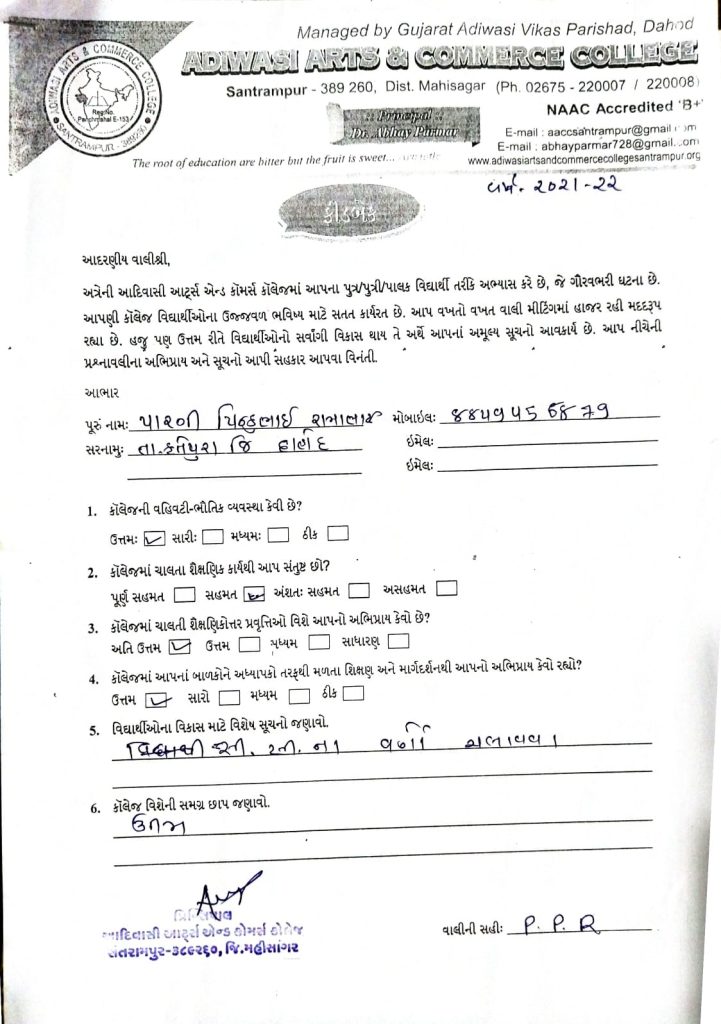 Managed by Gujarat Adiwasi Vikas Parishad, Dahod
ADIWASI ARTS & COMMERCE COLLEGE
Santrampur - 389 260, Dist. Mahisagar (Ph. 02675 - 220007 / 220008)
ADIWASI ARTS & COMMERCE COLLEGE
Reg.No.
Panchmahal E-153
SANTRAMPUR - 389260
:: Principal ::
Dr. Abhay Parmar
NAAC Accredited 'B+'
E-mail : aaccsantrampur@gmail.com
E-mail : abhayparmar728@gmail.com
The root of education are bitter but the fruit is sweet...
www.adiwasiartsandcommercecollegesantrampur.org
વર્ષ. ૨૦૨૧-૨૨
ફીડબેક
આદરણીય વાલીશ્રી,
અત્રેની આદિવાસી આર્ટ્સ એન્ડ કૉમર્સ કૉલેજમાં આપના પુત્ર/પુત્રી/પાલક વિદ્યાર્થી તરીકે અભ્યાસ કરે છે, જે ગૌરવભરી ઘટના છે.
આપણી કૉલેજ વિદ્યાર્થીઓના ઉજ્જવળ ભવિષ્ય માટે સતત કાર્યરત છે. આપ વખતો વખત વાલી મીટિંગમાં હાજર રહી મદદરૂપ
રહ્યા છે. હજુ પણ ઉત્તમ રીતે વિદ્યાર્થીઓનો સર્વાંગી વિકાસ થાય તે અર્થે આપનાં અમૂલ્ય સૂચનો આવકાર્ય છે. આપ નીચેની
પ્રશ્નાવલીના અભિપ્રાય અને સૂચનો આપી સહકાર આપવા વિનંતી.
આભાર
પૂરું નામઃ પારગી મોબાઇલઃ
સરનામુઃ તા.ફતેપુરા જિ ઇમેલઃ
ઇમેલઃ
1. કૉલેજની વહિવટી-ભૌતિક વ્યવસ્થા કેવી છે?
ઉત્તમઃ સારીઃ મધ્યમઃ ઠીક
2. કૉલેજમાં ચાલતા શૈક્ષણિક કાર્યથી આપ સંતુષ્ટ છો?
પૂર્ણ સહમત સહમત અંશતઃ સહમત અસહમત
3. કૉલેજમાં ચાલતી શૈક્ષણિકોત્તર પ્રવૃત્તિઓ વિશે આપનો અભિપ્રાય કેવો છે?
અતિ ઉત્તમ ઉત્તમ મધ્યમ સાધારણ
4. કૉલેજમાં આપનાં બાળકોને અધ્યાપકો તરફથી મળતા શિક્ષણ અને માર્ગદર્શનથી આપનો અભિપ્રાય કેવો રહ્યો?
ઉત્તમ સારો મધ્યમ ઠીક
5. વિદ્યાર્થીઓના વિકાસ માટે વિશેષ સૂચનો જણાવો.
ના વર્ગો ચલાવવા
6. કૉલેજ વિશેની સમગ્ર છાપ જણાવો.
ઉત્તમ
પ્રિન્સિપાલ
આદિવાસી આર્ટ્સ એન્ડ કોમર્સ કોલેજ
સંતરામપુર-૩૮૯૨૬૦, જિ.મહીસાગર
વાલીની સહીઃ P. P. R